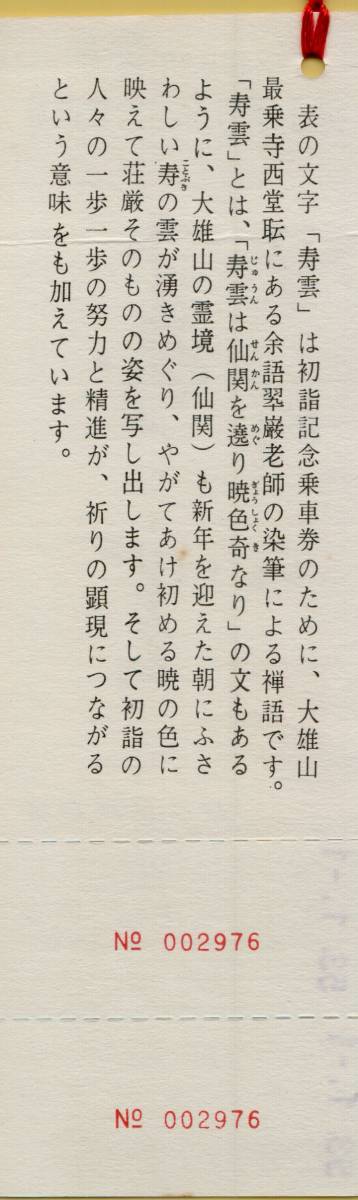 表の文字「寿雲」は初詣記念乗車券のために、大雄山
最乗寺西堂耘にある余語翠巌老師の染筆による禅語です。
「寿雲」とは、「寿雲は仙関を遶り暁色奇なり」の文もある
ように、大雄山の霊境(仙関)も新年を迎えた朝にふさ
わしい寿の雲が湧きめぐり、やがてあけ初める暁の色に
映えて荘厳そのものの姿を写し出します。そして初詣の
人々の一歩一歩の努力と精進が、祈りの顕現につながる
という意味をも加えています。
じゅうん
せんかん
めぐ
ぎょうしょくき
ことぶき
№ 002976
№ 002976